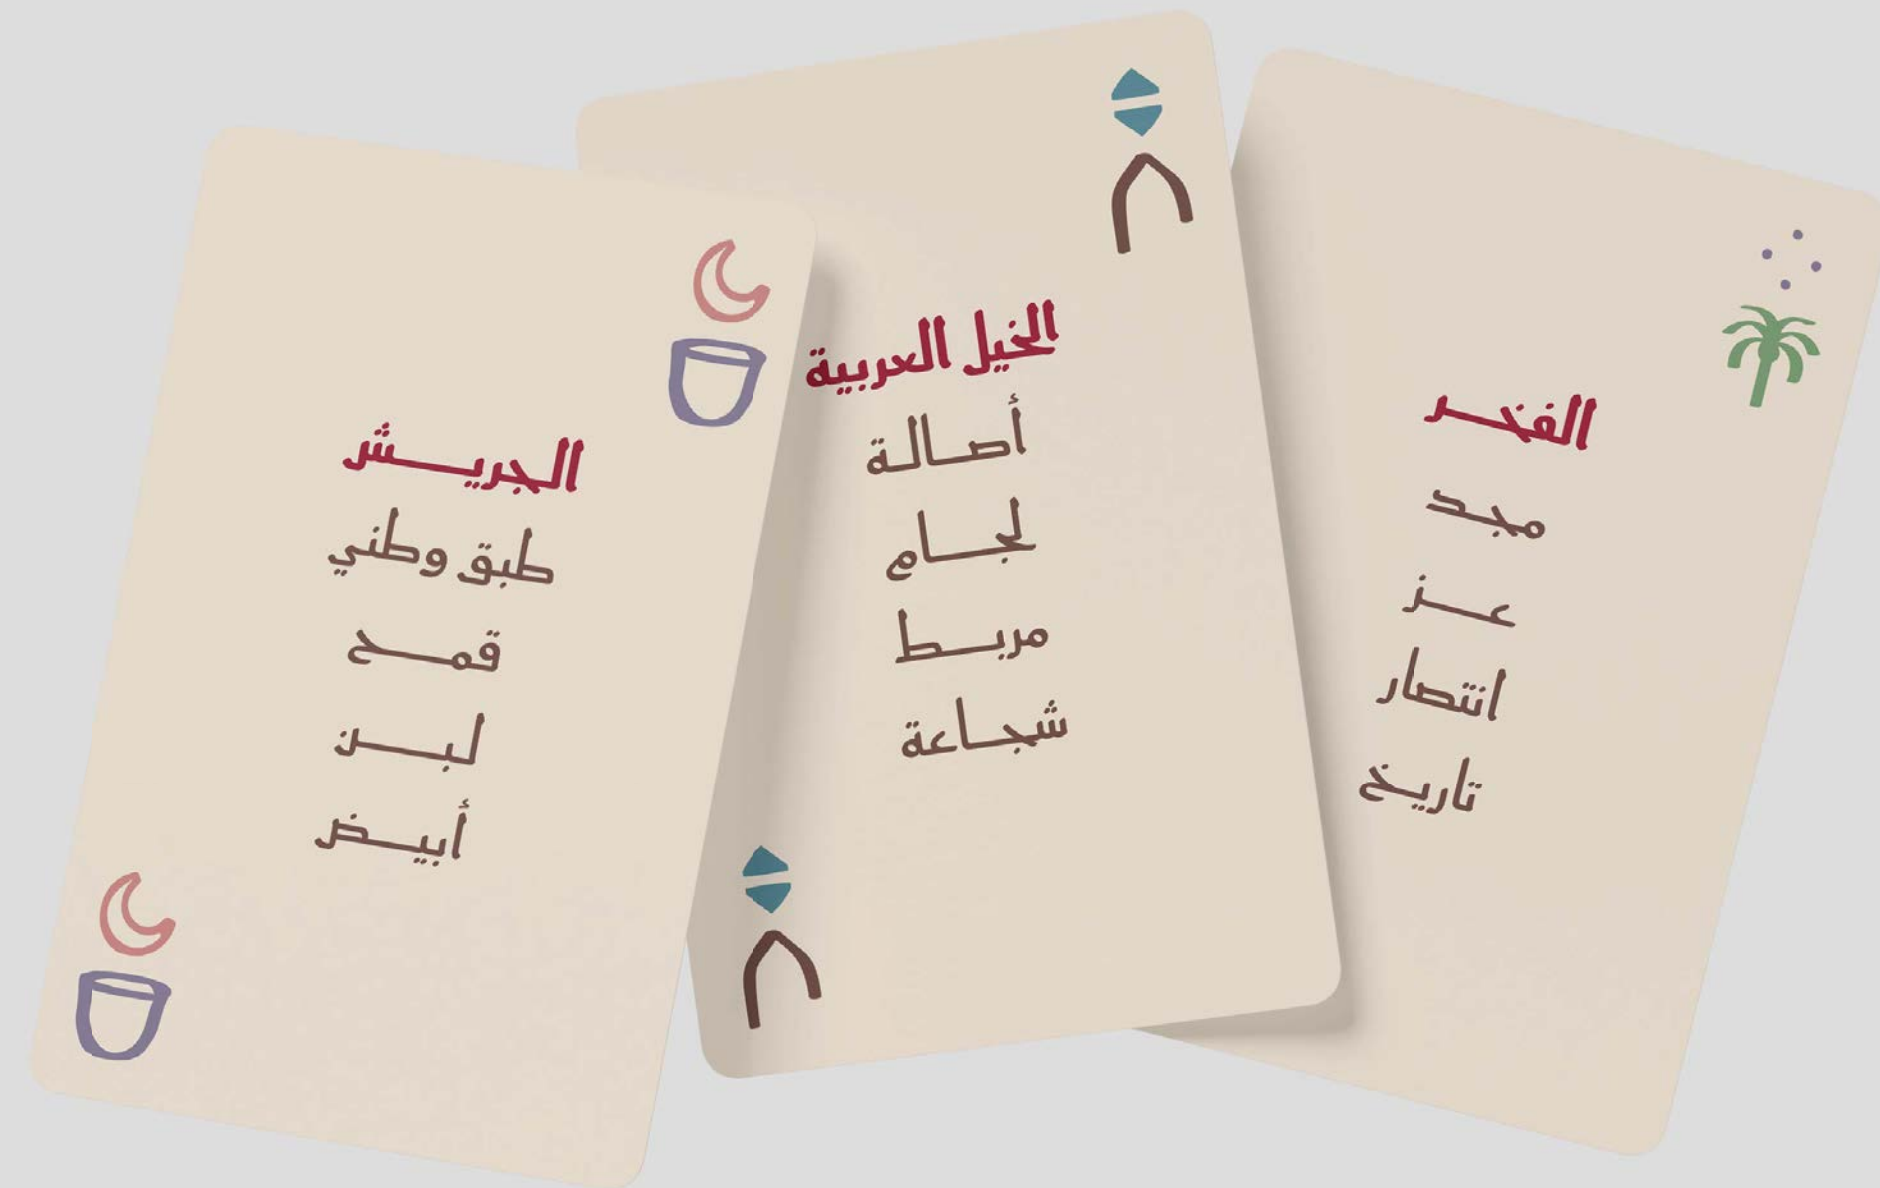 الفخر
مجد
عز
انتصار
تاريخ
الخيل العربية
أصالة
لجام
مربط
شجاعة
الجريش
طبق وطني
قمح
لبن
أبيض